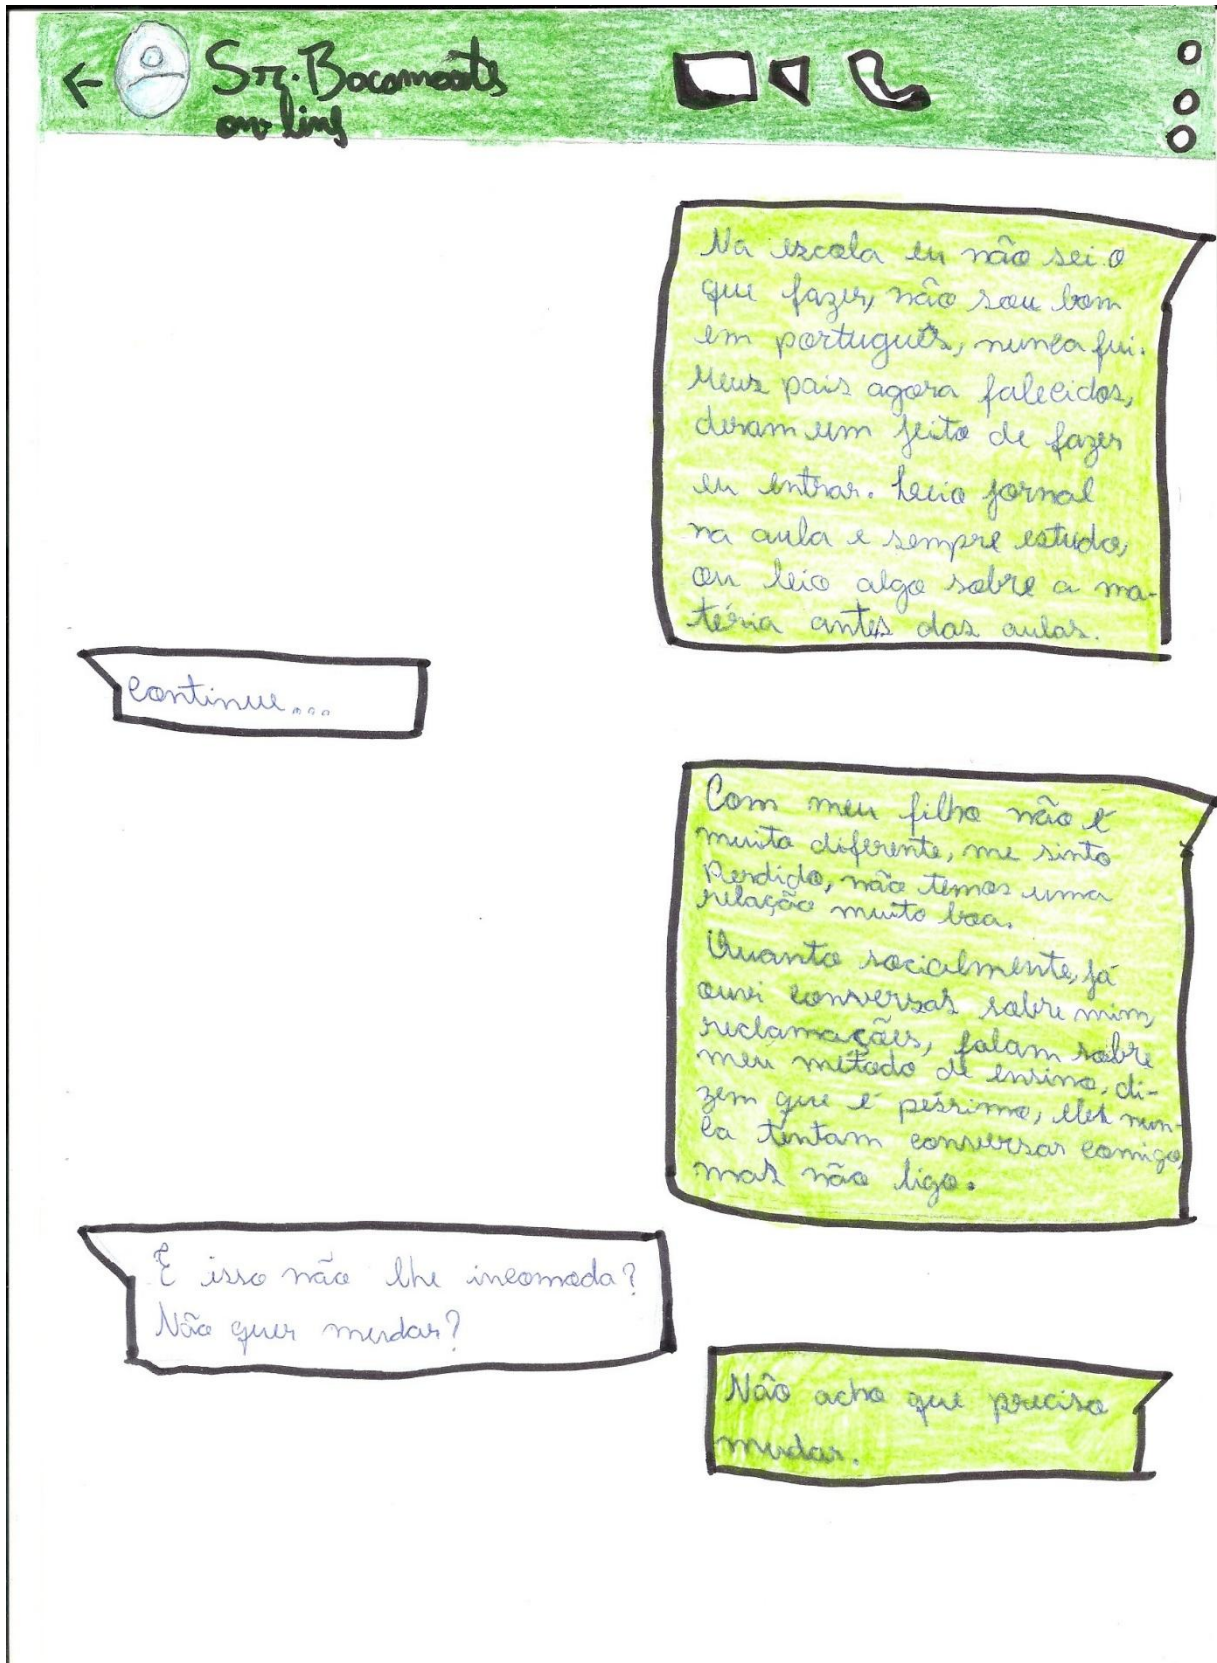 Srz. Bocamoats
on ling
Na escola eu não sei o
que fazer, não sou bom
em português, nunca fui.
Meus pais agora falecidos,
deram um jeito de fazer
eu entrar. Leio jornal
na aula e sempre estudo,
ou leio algo sobre a ma-
téria antes das aulas.
Continue...
Com meu filho não é
muito diferente, me sinto
Perdido, não temos uma
relação muito boa.
Quanto socialmente, já
ouvi conversas sobre mim,
reclamações, falam sobre
meu método de ensino, di-
zem que é péssimo, eles nun-
ca tentam conversar comigo,
mas não ligo.
E isso não lhe incomoda?
Não quer mudar?
Não acho que preciso
mudar.